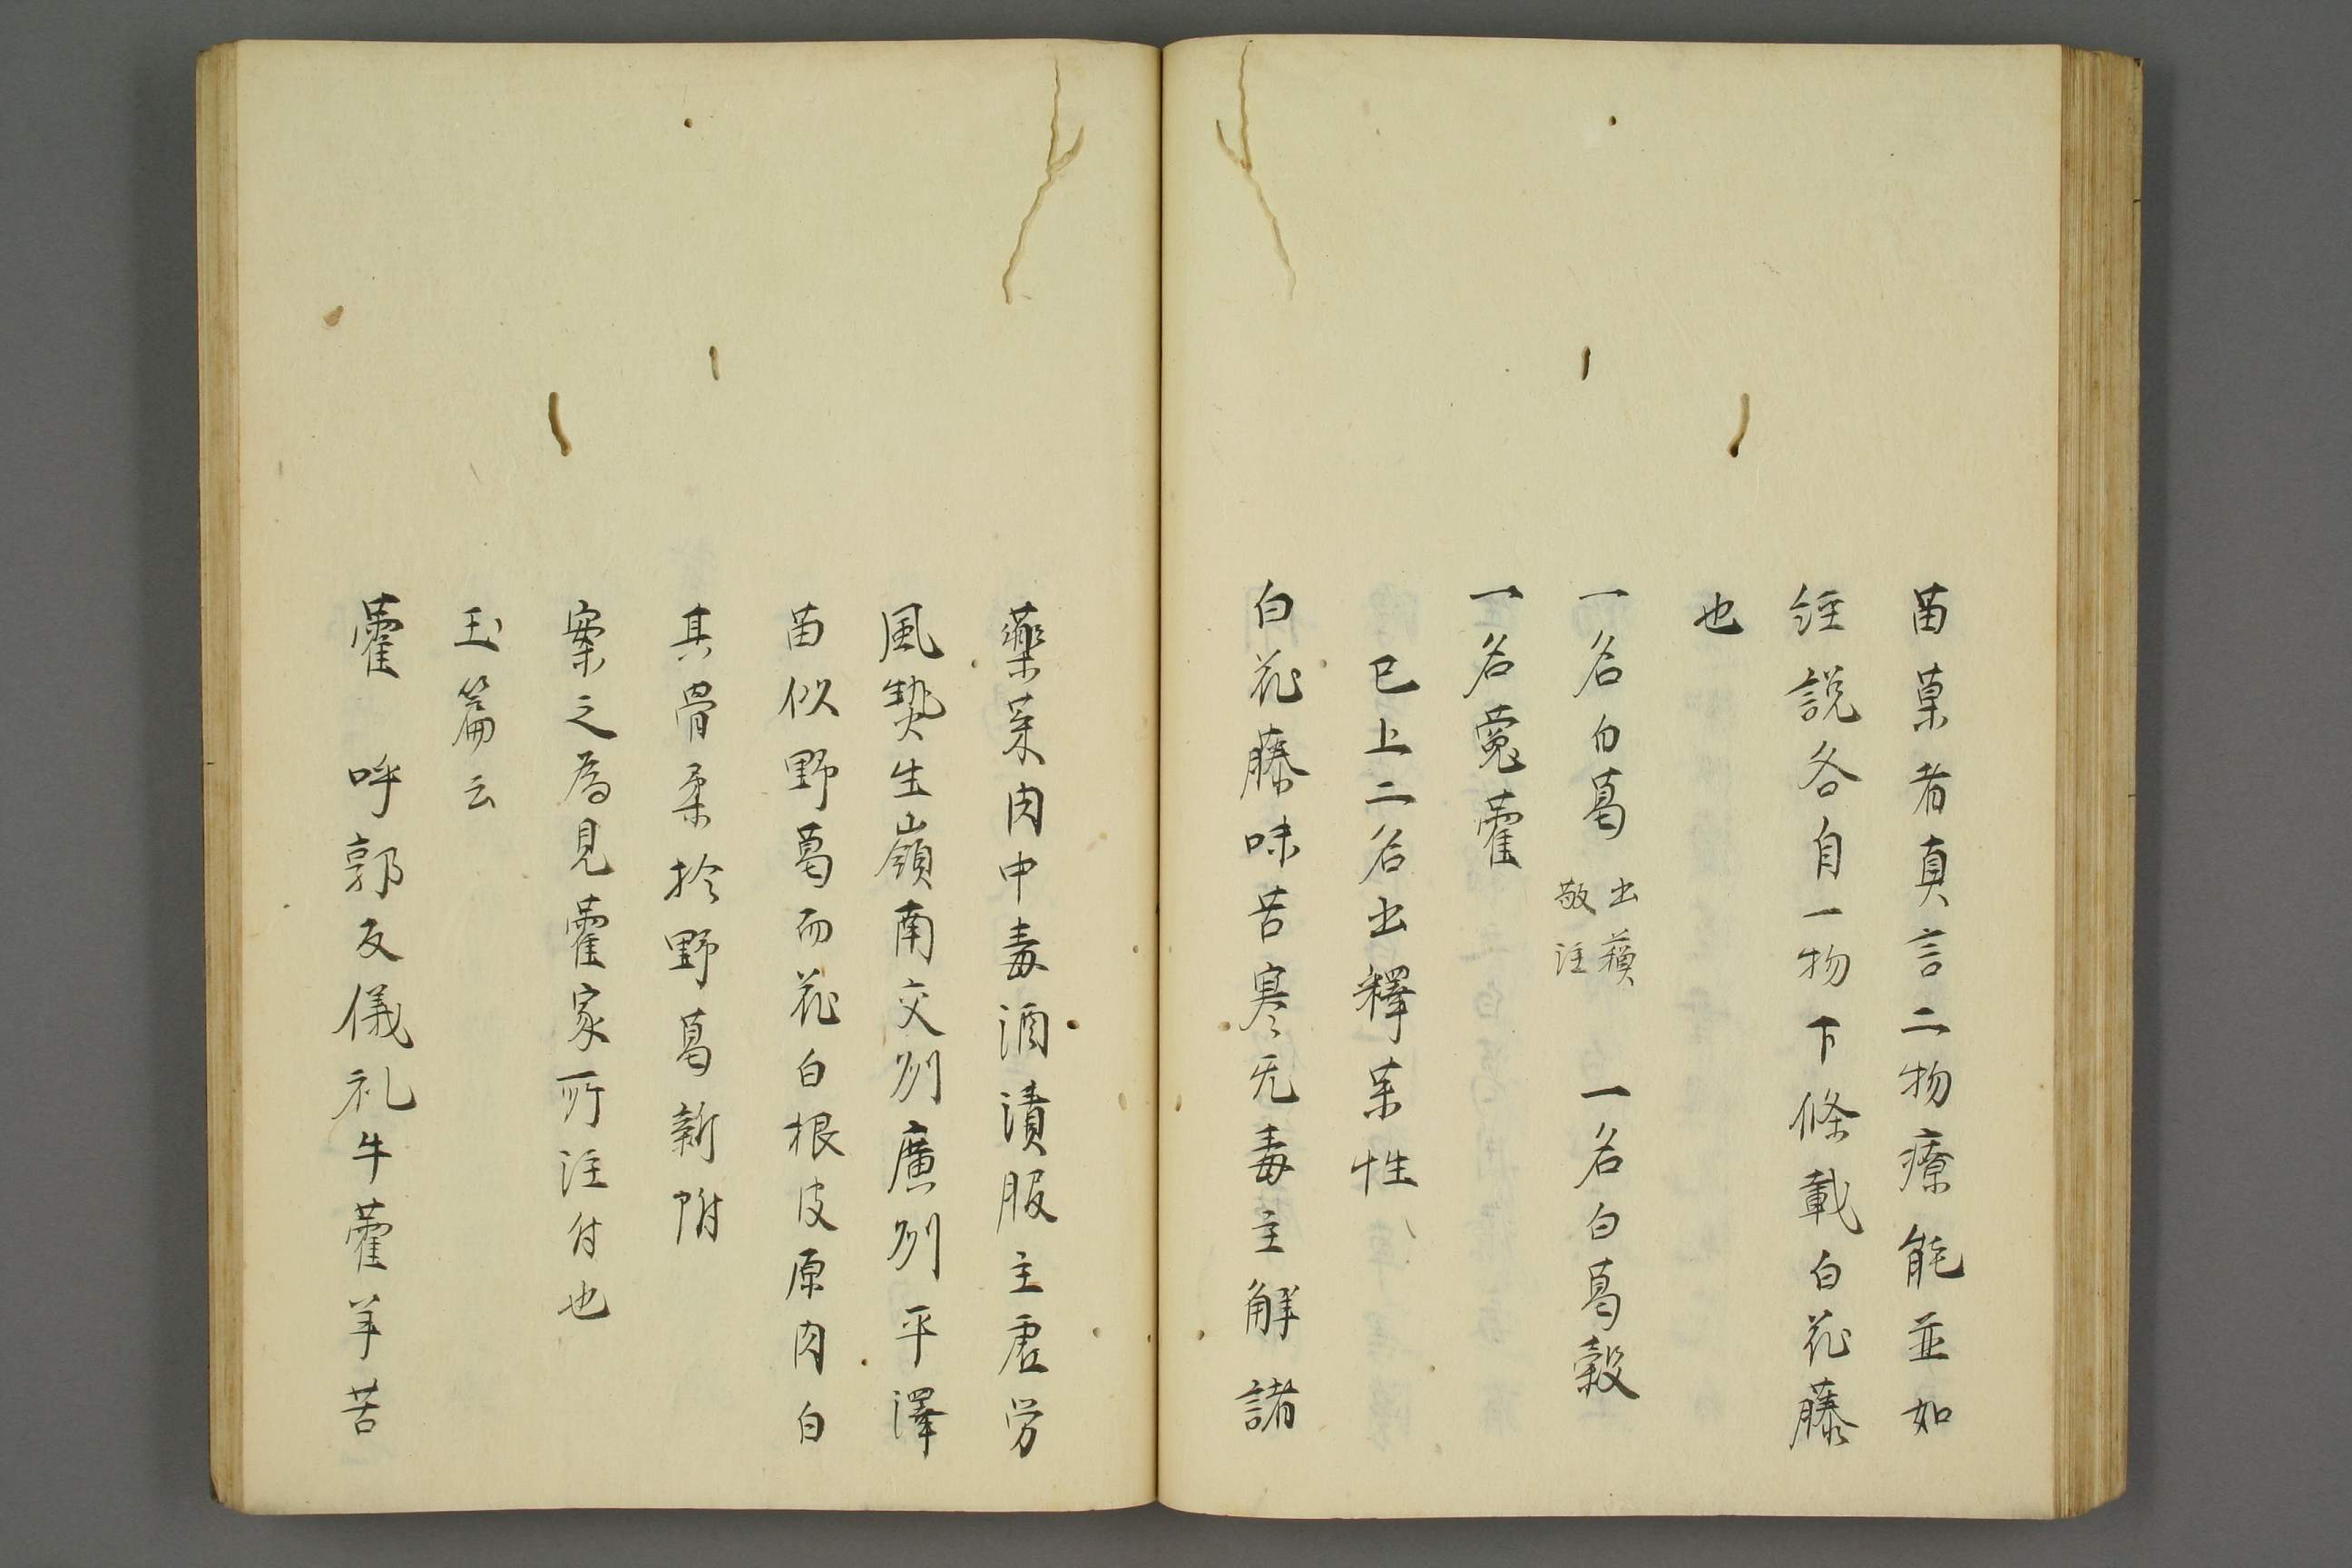 苗菓者真言二物療能並如
経説各自一物下條載白花藤
也
一名白葛 出蘓敬注 一名白葛穀
一名菟藿
已上二名出釋茉性
白花藤味苦寒无毒主解諸
藥茉肉中毒酒漬服主虚労
風𤍠生嶺南交州廣州平澤
苗似野葛而花白根皮厚肉白
其骨柔扵野葛新附
案之為見藿家所注付也
玉篇云
藿 呼郭反儀礼牛藿羊苦